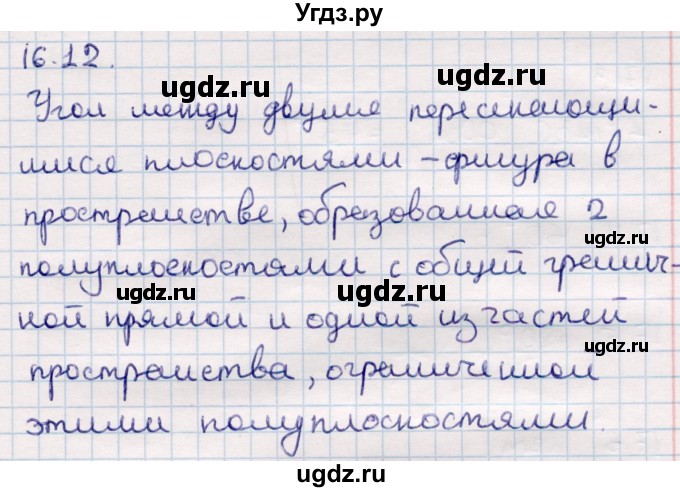 Угдз.ру
16.12.
Угол между двумя пересекающи-
мися плоскостями – фигура в
пространстве, образованная 2
полуплоскостями с общей гранич-
ной прямой и одной из частей
пространства, ограниченной
этими полуплоскостями.
ugdz.ru
ugdz.ru
ugdz.ru
ugdz.ru
ugdz.ru
ugdz.ru
ugdz.ru
ugdz.ru
ugdz.ru